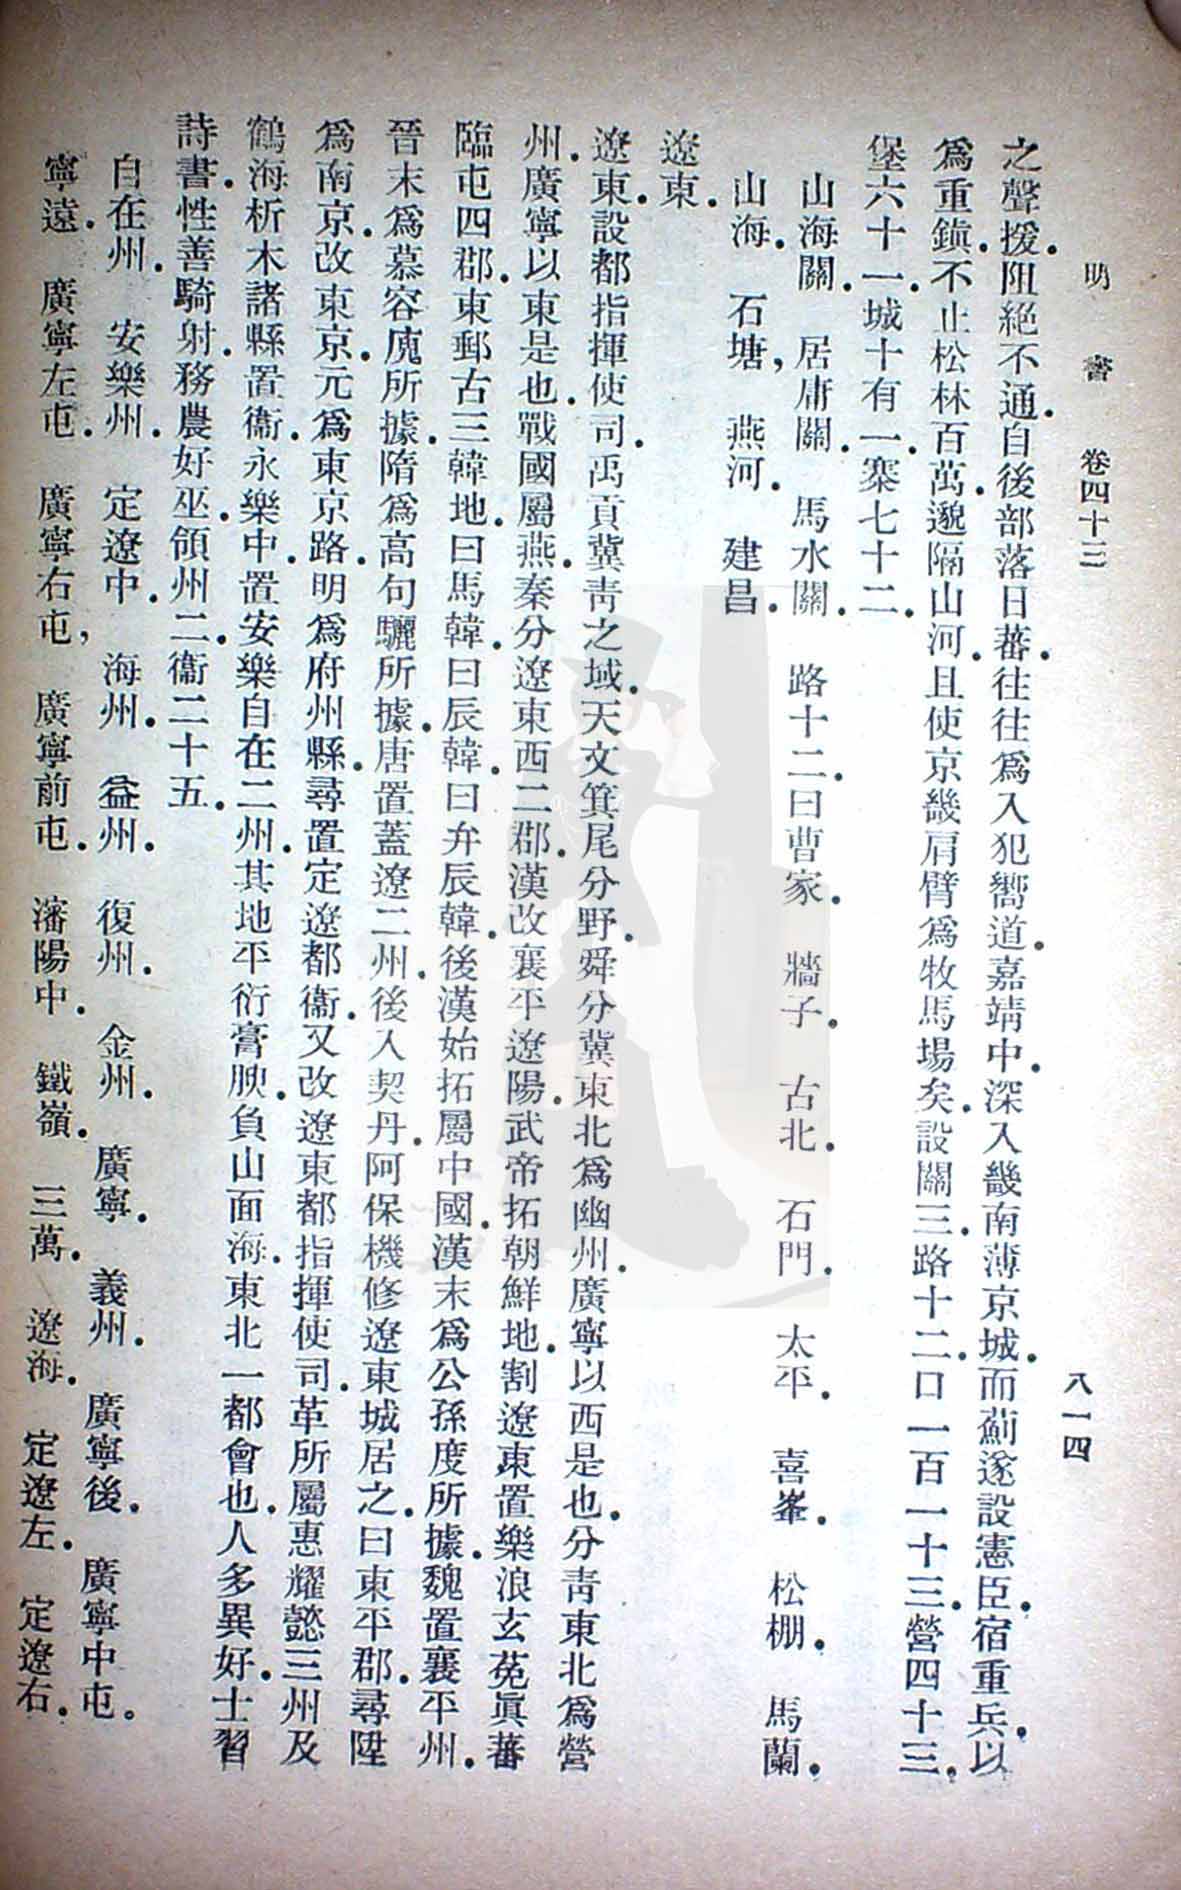 明書 卷四十三 八一四
之聲援.阻絕不通.自後部落日蕃.往往爲入犯嚮道.嘉靖中.深入畿南薄京城.而薊遂設憲臣.宿重兵.以
爲重鎮.不止松林百萬.邈隔山河.且使京畿肩臂爲牧馬場矣.設關三.路十二.口一百一十三.營四十三.
堡六十一.城十有一.寨七十二.
山海關.居庸關.馬水關.路十二.曰曹家 牆子.古北.石門.太平.喜峯.松棚.馬蘭.
山海.石塘,燕河.建昌.
遼東.
遼東.設都指揮使司.禹貢冀靑之域.天文箕尾分野.舜分冀東北爲幽州.廣寧以西是也.分靑東北爲營
州.廣寧以東是也.戰國屬燕.秦分遼東西二郡.漢改襄平遼陽.武帝拓朝鮮地.割遼東置樂浪玄菟眞蕃
臨屯四郡.東郵古三韓地.曰馬韓.曰辰韓.曰弁辰韓.後漢始拓屬中國.漢末爲公孫度所據.魏置襄平州.
晉末爲慕容廆所據.隋爲高句驪所據.唐置蓋遼二州.後入契丹.阿保機修遼東城居之.曰東平郡.尋陞
爲南京.改東京.元爲東京路.明爲府州縣.尋置定遼都衞.又改遼東都指揮使司.革所屬惠耀懿三州及
鶴海析木諸縣置衞.永樂中.置安樂自在二州.其地平衍膏腴.負山面海.東北一都會也.人多異好.士習
詩書.性善騎射.務農好巫.領州二.衞二十五.
自在州.安樂州.定遼中.海州.益州.復州.金州.廣寧.義州.廣寧後.廣寧中屯。
寧遠.廣寧左屯.廣寧右屯,廣寧前屯.瀋陽中.鐵嶺.三萬.遼海.定遼左.定遼右.